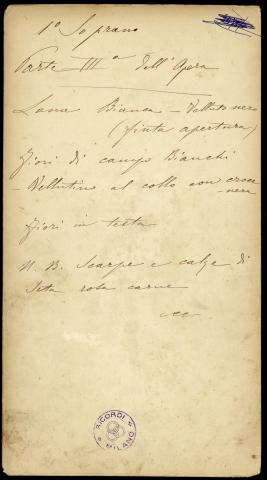 1º Soprano
Parte IIIª dell'Opera
Lana Bianca - Velluto nero
(finta apertura)
Fiori di campo Bianchi
- Vellutino al collo con croce
nera
Fiori in testa
N. B. Scarpe e calze di
Seta rosa carne
RICORDI
MILANO